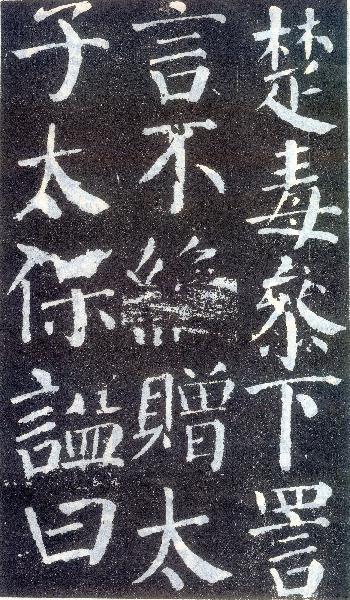 楚毒叅下詈
言不絕贈太
子太保謚曰